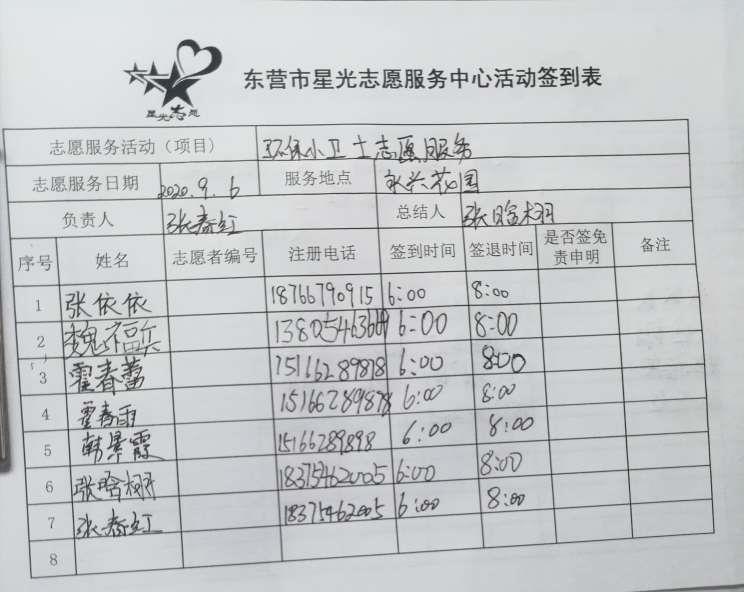 星光志愿
东营市星光志愿服务中心活动签到表
志愿服务活动（项目） 环保小卫士志愿服务
志愿服务日期 2020.9.6 服务地点 永兴花园
负责人 张春红 总结人
序号 姓名 志愿者编号 注册电话 签到时间 签退时间 是否签免责申明 备注
1 张依依 18766790915 6:00 8:00
2 魏福兵 6:00 8:00
3 霍春蕾 15166289878 6:00 8:00
4 霍春雨 15166289878 6:00 8:00
5 韩景霞 15166289898 6:00 8:00
6 18375462005 6:00 8:00
7 张春红 18375462005 6:00 8:00
8